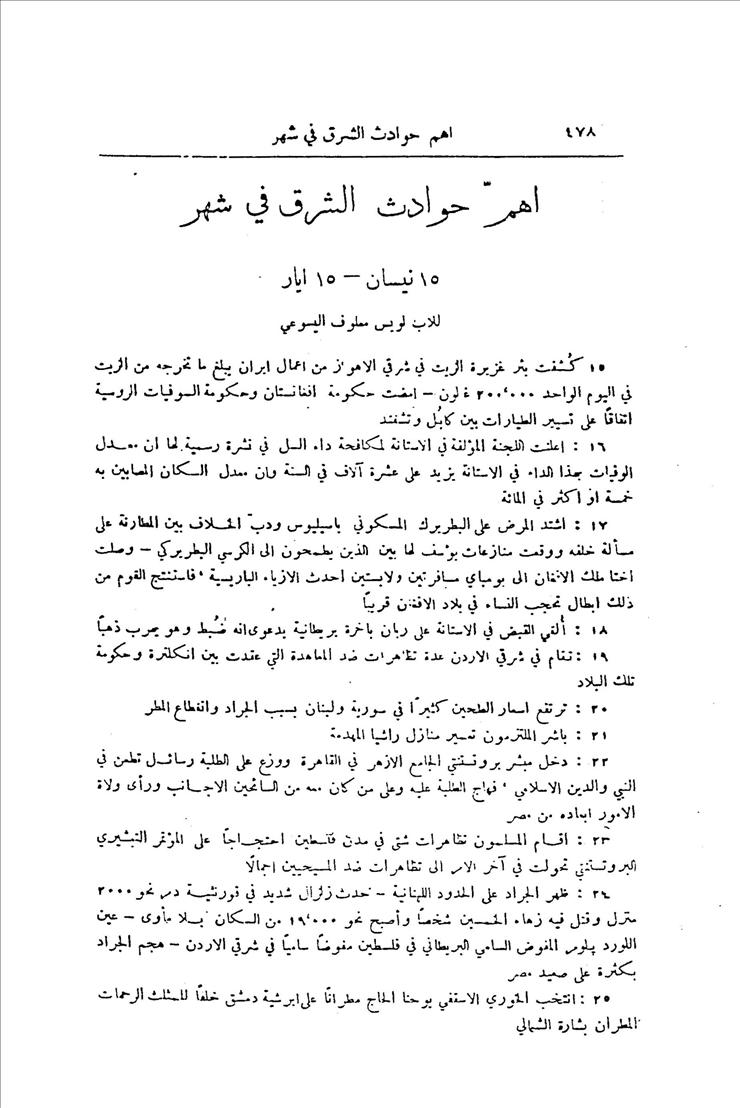 ٤٧٨ اهم حوادث الشرق في شهر
اهمّ حوادث الشرق في شهر
١٥ نيسان – ١٥ ايار
للاب لويس معلوف اليسوعي
١٥ كُشفت بئر غزيرة الزيت في شرقي الاهواز من اعمال ايران يبلغ ما تخرجه من الزيت
في اليوم الواحد ٢٠٠٬٠٠٠ غالون – امضت حكومة افغانستان وحكومة السوفيات الروسية
اتفاقًا على تسيير الطيارات بين كابُل وتشقند
١٦ : اعلنت اللجنة المؤلفة في الاستانة لمكافحة داء السل في نشرة رسمية لها ان معدل
الوفيات بهذا الداء في الاستانة يزيد على عشرة آلاف في السنة وان معدل السكان المصابين به
خمسة او اكثر في المائة
١٧ : اشتد المرض على البطريرك المسكوني باسيليوس ودبّ الخلاف بين المطارنة على
مسألة خلفه ووقعت منازعات يؤسف لها بين الذين يطمحون الى الكرسي البطريركي – وصلت
اختا ملك الافغان الى بومباي مسافرتين ولابستين احدث الازياء الباريسية ، فاستنتج القوم من
ذلك ابطال تحجب النساء في بلاد الافغان قريبًا
١٨ : أُلقي القبض في الاستانة على ربان باخرة بريطانية بدعوى انه ضُبط وهو يهرب ذهبًا
١٩ : تقام في شرقي الاردن عدة تظاهرات ضد المعاهدة التي عقدت بين انكلترة وحكومة
تلك البلاد
٢٠ : ترتفع اسعار الطحين كثيرًا في سورية ولبنان بسبب الجراد وانقطاع المطر
٢١ : باشر الملتزمون تعمير منازل راشيا المهدمة
٢٢ : دخل مبشر بروتستنتي الجامع الازهر في القاهرة ووزع على الطلبة رسائل تطعن في
النبي والدين الاسلامي ، فهاج الطلبة عليه وعلى من كان معه من السائحين الاجانب ورأى ولاة
الامور ابعاده من مصر
٢٣ : اقام المسلمون تظاهرات شتى في مدن فلسطين احتجاجًا على المؤتمر التبشيري
البروتستنتي تحولت في آخر الامر الى تظاهرات ضد المسيحيين اجمالًا
٢٤ : ظهر الجراد على الحدود اللبنانية – حدث زلزال شديد في قورنثية دمر نحو ٢٠٠٠
منزل وقتل فيه زهاء الخمسين شخصًا وأصبح نحو ١٩٬٠٠٠ من السكان بلا مأوى – عين
اللورد پلومر المفوض السامي البريطاني في فلسطين مفوضًا ساميًا في شرقي الاردن – هجم الجراد
بكثرة على صعيد مصر
٢٥ : انتخب الخوري الاسقفي يوحنا الحاج مطرانًا على ابرشية دمشق خلفًا للمثلث الرحمات
المطران بشارة الشمالي